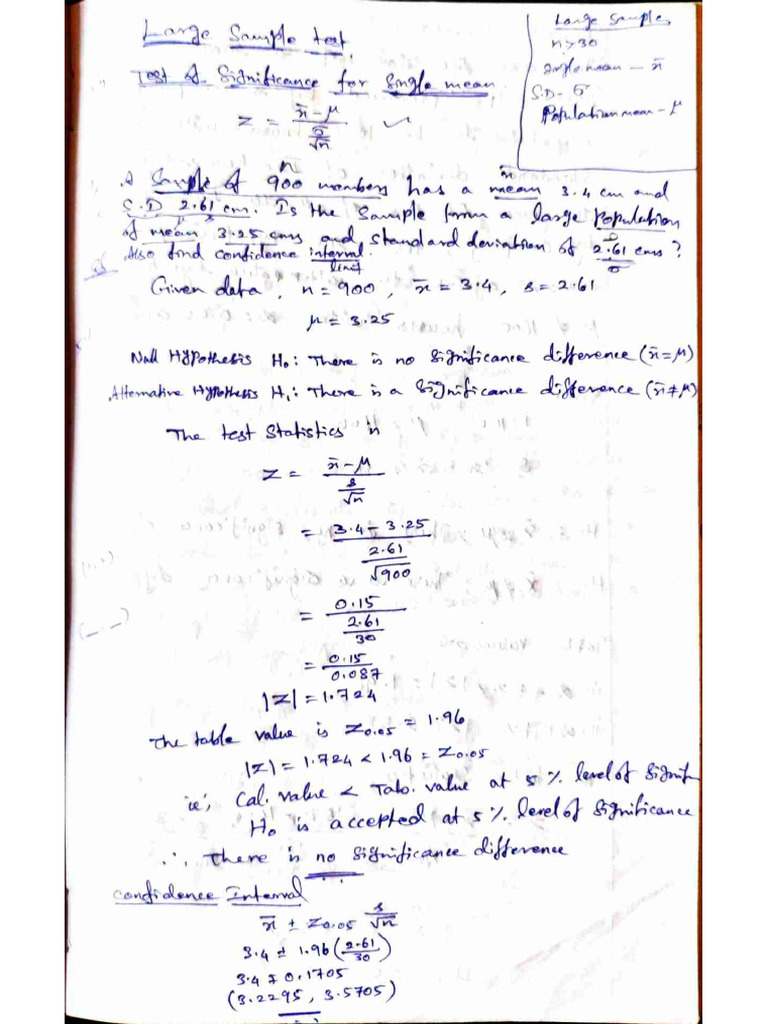 Large Sample test.
Test of Significance for Single mean
z = (x̄ - μ) / (σ/√n)
Large Sample
n>30
Single mean - x̄
S.D - σ
Population mean - μ
n
x̄
A Sample of 900 members has a mean 3.4 cm and
S.D 2.61 cm. Is the Sample from a large Population
of mean 3.25 cms and standard deviation of 2.61 cms?
Also find confidence interval.
limit
σ
Given data, n = 900, x̄ = 3.4, s = 2.61
μ = 3.25
Null Hypothesis H₀: There is no Significance difference (x̄ = μ)
Alternative Hypothesis H₁: There is a Significance difference (x̄ ≠ μ)
The test Statistics is
Z = (x̄ - μ) / (s/√n)
= (3.4 - 3.25) / (2.61/√900)
= 0.15 / (2.61/30)
= 0.15 / 0.087
|Z| = 1.724
The table value is Z0.05 = 1.96
|Z| = 1.724 < 1.96 = Z0.05
ie; Cal. value < Tab. value at 5 % level of Signif
H₀ is accepted at 5 % level of Significance
∴ There is no Significance difference
Confidence Interval
x̄ ± Z0.05 s/√n
3.4 ± 1.96 (2.61/30)
3.4 ∓ 0.1705
(3.2295, 3.5705)